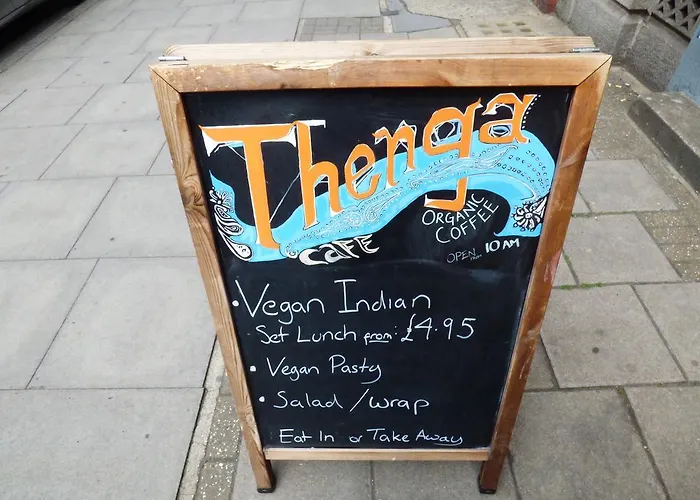 Thenga
CaFE
ORGANIC
COFFEE
OPEN FROM 10 AM
• Vegan Indian
Set Lunch from: £4.95
• Vegan Pasty
• Salad / Wrap
Eat In or Take Away